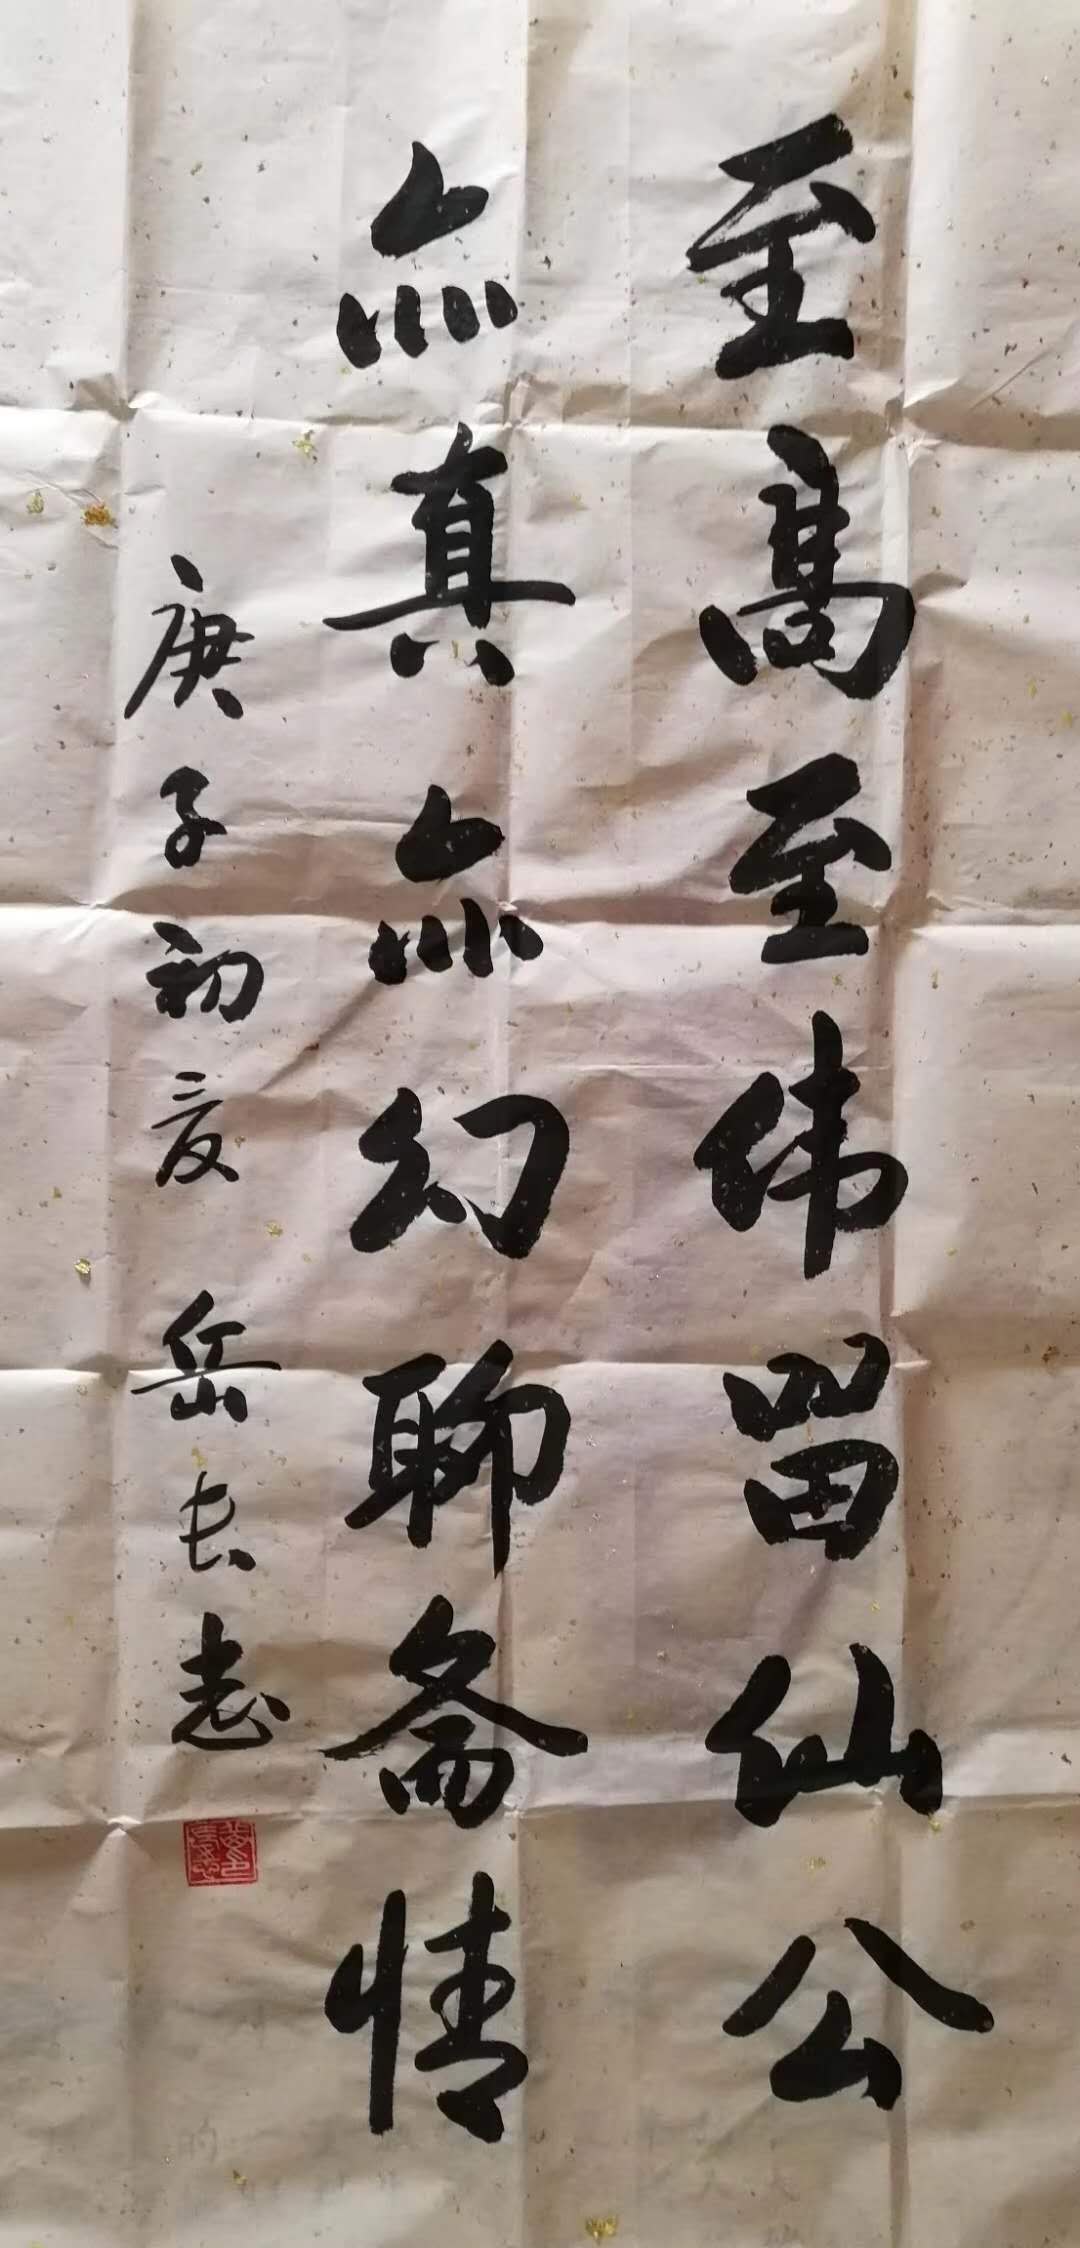 至高至伟留仙公
亦真亦幻聊斋情
庚子初夏 岳长志